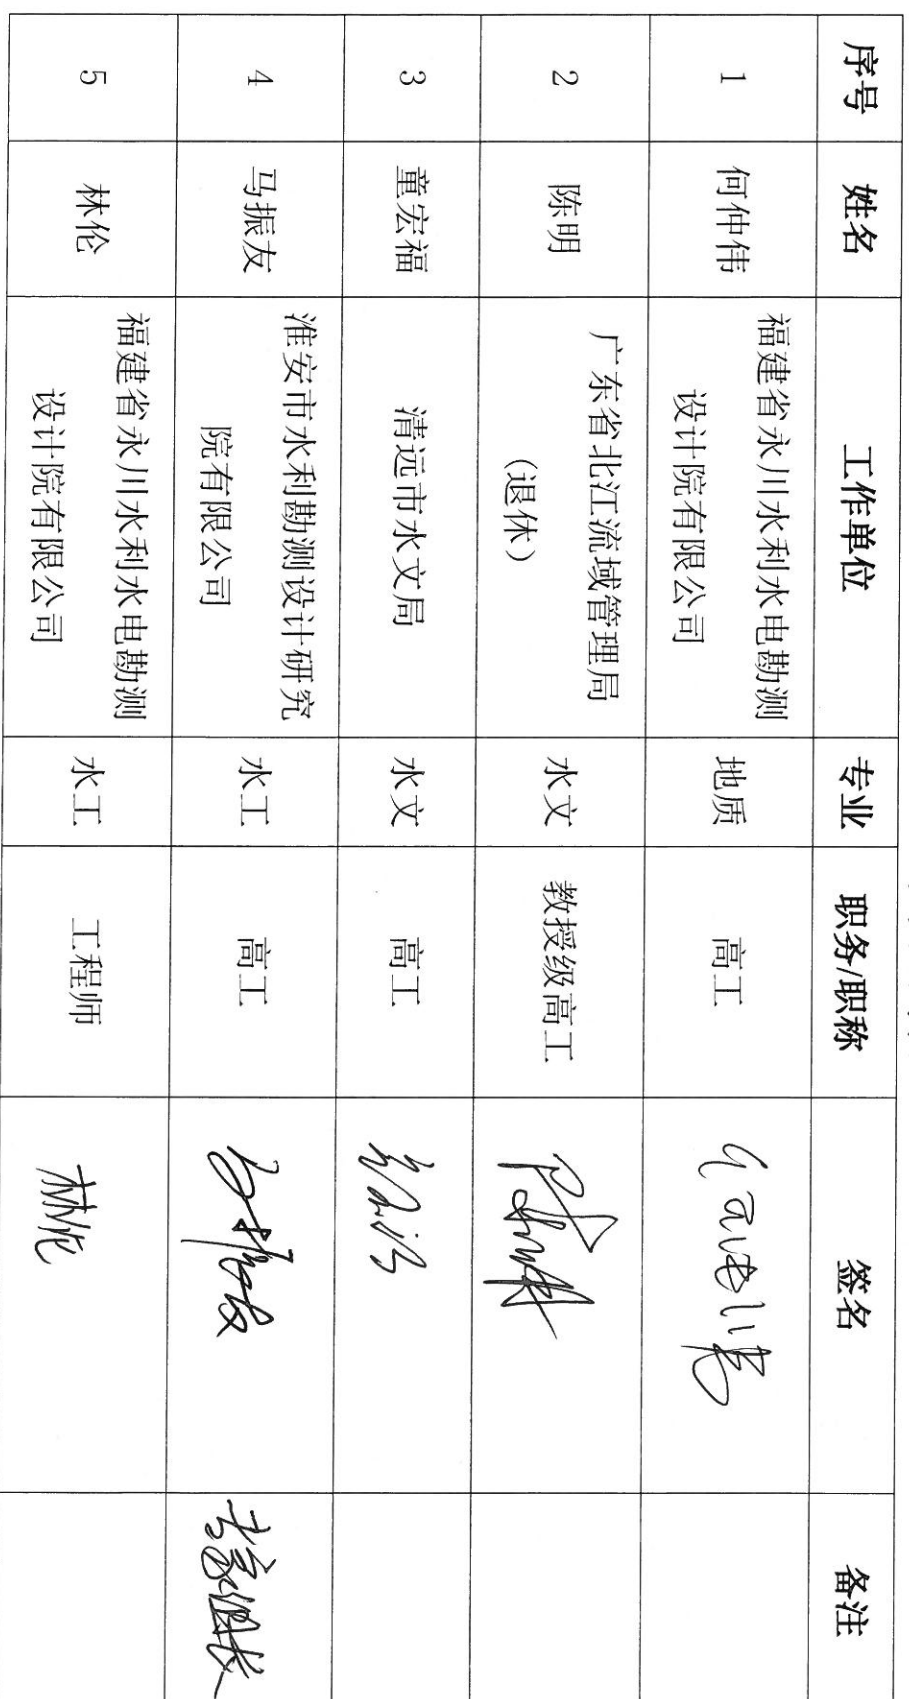 序号 姓名 工作单位 专业 职务/职称 签名 备注
1 何仲伟 福建省永川水利水电勘测
设计院有限公司 地质 高工
2 陈明 广东省北江流域管理局
(退休) 水文 教授级高工
3 童宏福 清远市水文局 水文 高工
4 马振友 淮安市水利勘测设计研究
院有限公司 水工 高工 马振友 专家组长
5 林伦 福建省永川水利水电勘测
设计院有限公司 水工 工程师 林伦